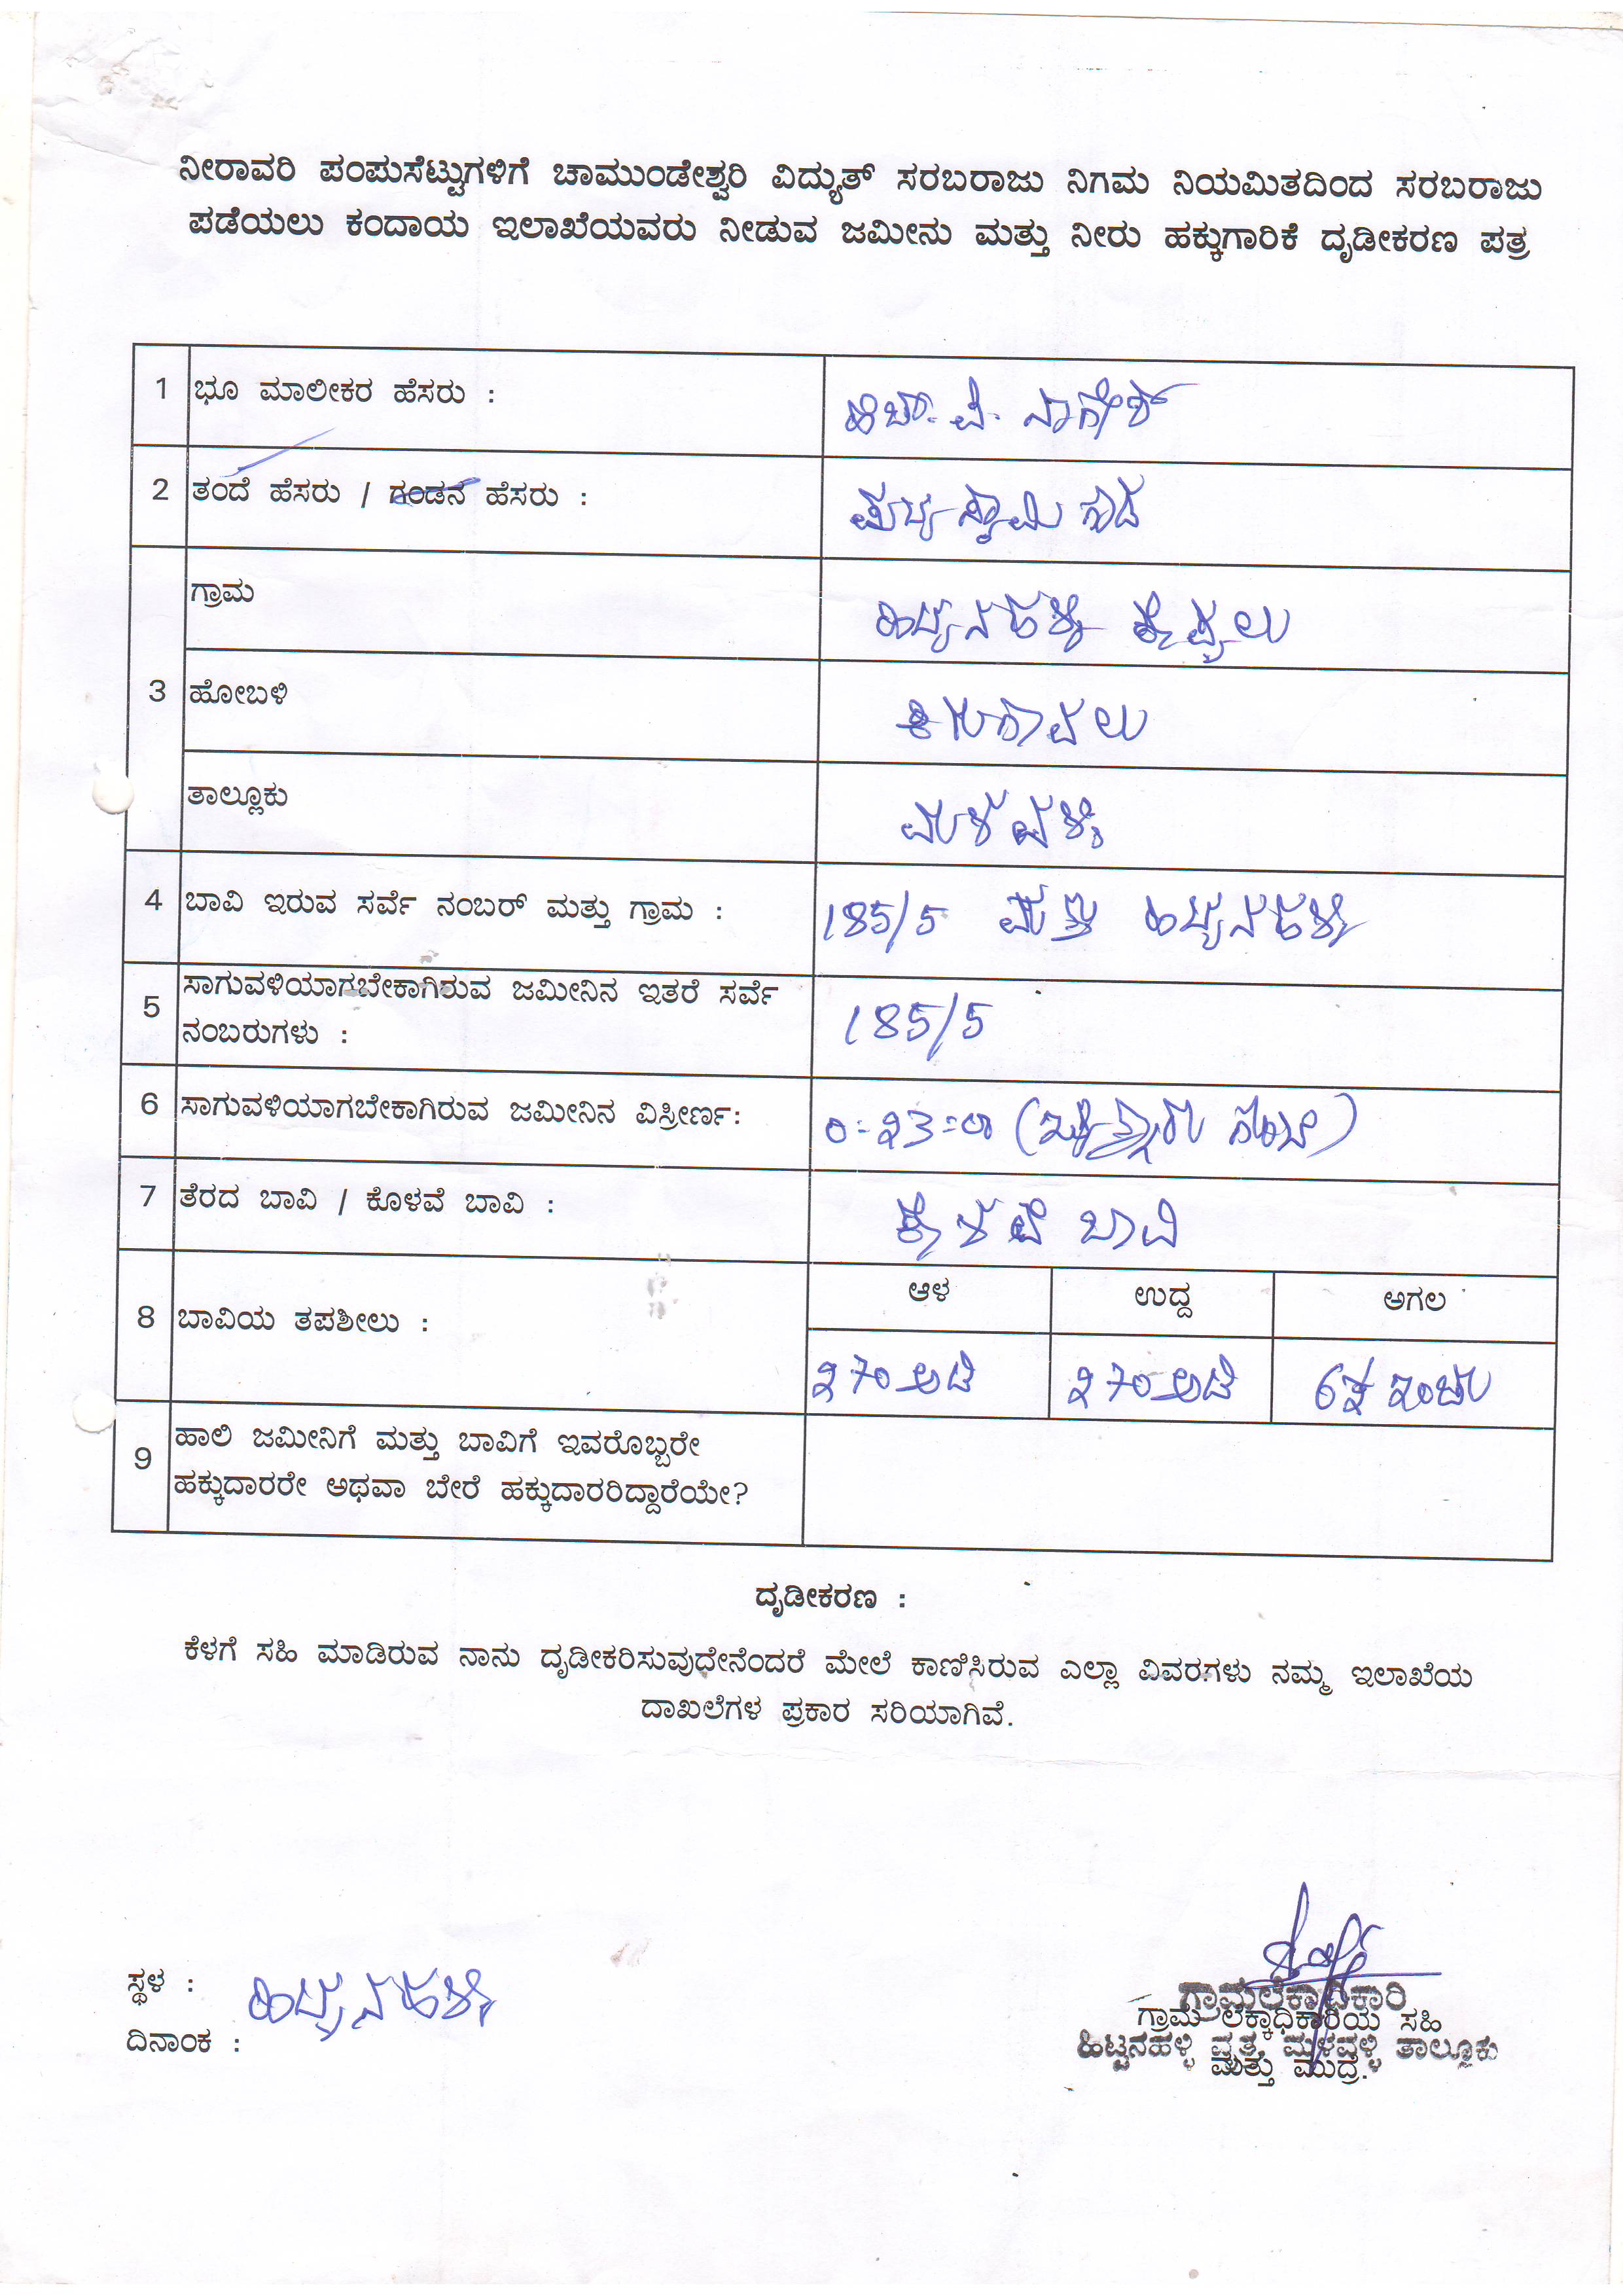 ನೀರಾವರಿ ಪಂಪುಸೆಟ್ಟುಗಳಿಗೆ ಚಾಮುಂಡೇಶ್ವರಿ ವಿದ್ಯುತ್ ಸರಬರಾಜು ನಿಗಮ ನಿಯಮಿತದಿಂದ ಸರಬರಾಜು
ಪಡೆಯಲು ಕಂದಾಯ ಇಲಾಖೆಯವರು ನೀಡುವ ಜಮೀನು ಮತ್ತು ನೀರು ಹಕ್ಕುಗಾರಿಕೆ ದೃಡೀಕರಣ ಪತ್ರ
1 ಭೂ ಮಾಲೀಕರ ಹೆಸರು : ಹೆಚ್. ವಿ. ನಾಗೇಶ್
2 ತಂದೆ ಹೆಸರು / ಗಂಡನ ಹೆಸರು : ಸ್ವಾಮಿ ಗೌಡ
3 ಗ್ರಾಮ ಹಿಟ್ಟನಹಳ್ಳಿ ಕೊಪ್ಪಲು
ಹೋಬಳಿ ಕಿರುಗಾವಲು
ತಾಲ್ಲೂಕು ಮಳವಳ್ಳಿ
4 ಬಾವಿ ಇರುವ ಸರ್ವೆ ನಂಬರ್ ಮತ್ತು ಗ್ರಾಮ : 185/5 ಮತ್ತು ಹಿಟ್ಟನಹಳ್ಳಿ
5 ಸಾಗುವಳಿಯಾಗಬೇಕಾಗಿರುವ ಜಮೀನಿನ ಇತರೆ ಸರ್ವೆ
ನಂಬರುಗಳು : 185/5
6 ಸಾಗುವಳಿಯಾಗಬೇಕಾಗಿರುವ ಜಮೀನಿನ ವಿಸ್ತೀರ್ಣ:
7 ತೆರದ ಬಾವಿ / ಕೊಳವೆ ಬಾವಿ : ಕೊಳವೆ ಬಾವಿ
8 ಬಾವಿಯ ತಪಶೀಲು : ಆಳ ಉದ್ದ ಅಗಲ
೩70 ಅಡಿ ೩70 ಅಡಿ ಇಂಚು
9 ಹಾಲಿ ಜಮೀನಿಗೆ ಮತ್ತು ಬಾವಿಗೆ ಇವರೊಬ್ಬರೇ
ಹಕ್ಕುದಾರರೇ ಅಥವಾ ಬೇರೆ ಹಕ್ಕುದಾರರಿದ್ದಾರೆಯೇ?
ದೃಡೀಕರಣ :
ಕೆಳಗೆ ಸಹಿ ಮಾಡಿರುವ ನಾನು ದೃಡೀಕರಿಸುವುದೇನೆಂದರೆ ಮೇಲೆ ಕಾಣಿಸಿರುವ ಎಲ್ಲಾ ವಿವರಗಳು ನಮ್ಮ ಇಲಾಖೆಯ
ದಾಖಲೆಗಳ ಪ್ರಕಾರ ಸರಿಯಾಗಿವೆ.
ಸ್ಥಳ : ಹಿಟ್ಟನಹಳ್ಳಿ
ದಿನಾಂಕ :
ಗ್ರಾಮಲೆಕ್ಕಾಧಿಕಾರಿ
ಗ್ರಾಮ ಲೆಕ್ಕಾಧಿಕಾರಿಯ ಸಹಿ
ಹಿಟ್ಟನಹಳ್ಳಿ ವೃತ್ತ, ಮಳವಳ್ಳಿ ತಾಲ್ಲೂಕು
ಮತ್ತು ಮುದ್ರೆ.